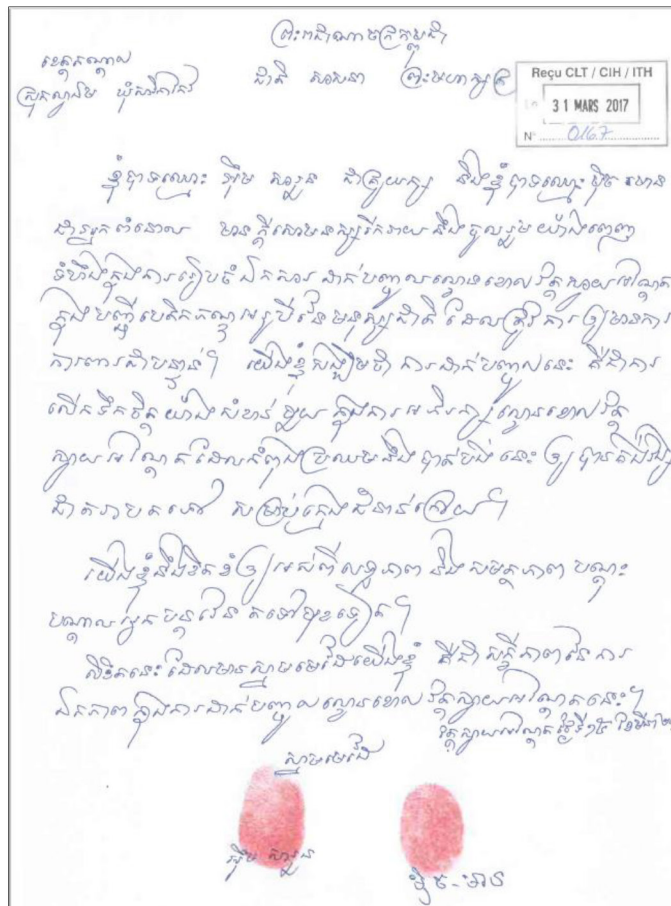 ព្រះរាជាណាចក្រកម្ពុជា
ខេត្តកណ្តាល
ជាតិ សាសនា ព្រះមហាក្សត្រ
ស្រុកល្វាឯម ឃុំ
Reçu CLT / CIH / ITH
Le 31 MARS 2017
N° 0167
ខ្ញុំបាទឈ្មោះ ស៊ឹម សារួន ជាគ្រូយក្ស និងខ្ញុំបាទឈ្មោះ ប៉ិច មាន
ជាអ្នកពំនោល មានក្តីសោមនស្សរីករាយ នឹងចូលរួមយ៉ាងពេញ
ទំហឹងក្នុងការរៀបចំឯកសារ ដាក់បញ្ចូលល្ខោនខោល វត្តស្វាយអណ្តែត
ក្នុងបញ្ជីបេតិកភណ្ឌអរូបីនៃមនុស្សជាតិ ដែលត្រូវការឲ្យមានការ
ការពារជាបន្ទាន់។ យើងខ្ញុំសង្ឃឹមថា ការដាក់បញ្ចូលនេះ គឺជាការ
លើកទឹកចិត្តយ៉ាងសំខាន់មួយ ក្នុងការអភិរក្សល្ខោនខោលវត្ត
ស្វាយអណ្តែតដែលកំពុងប្រឈមនឹងបាត់បង់នេះ ឲ្យបានគង់វង្ស
ជាតរាបតទៅ សម្រាប់ក្មេងជំនាន់ក្រោយ។
យើងខ្ញុំនឹងខិតខំឲ្យអស់ពីលទ្ធភាព និងសមត្ថភាព បណ្តុះ
បណ្តាលអ្នកបន្តវេន តទៅមុខទៀត។
លិខិតនេះ ដែលមានស្នាមមេដៃយើងខ្ញុំ គឺជាសក្ខីភាពនៃការ
ឯកភាពក្នុងការដាក់បញ្ចូលល្ខោនខោល វត្តស្វាយអណ្តែតនេះ។
វត្តស្វាយអណ្តែត ថ្ងៃទី
ស្នាមមេដៃ
ស៊ឹម សារួន
ប៉ិច-មាន